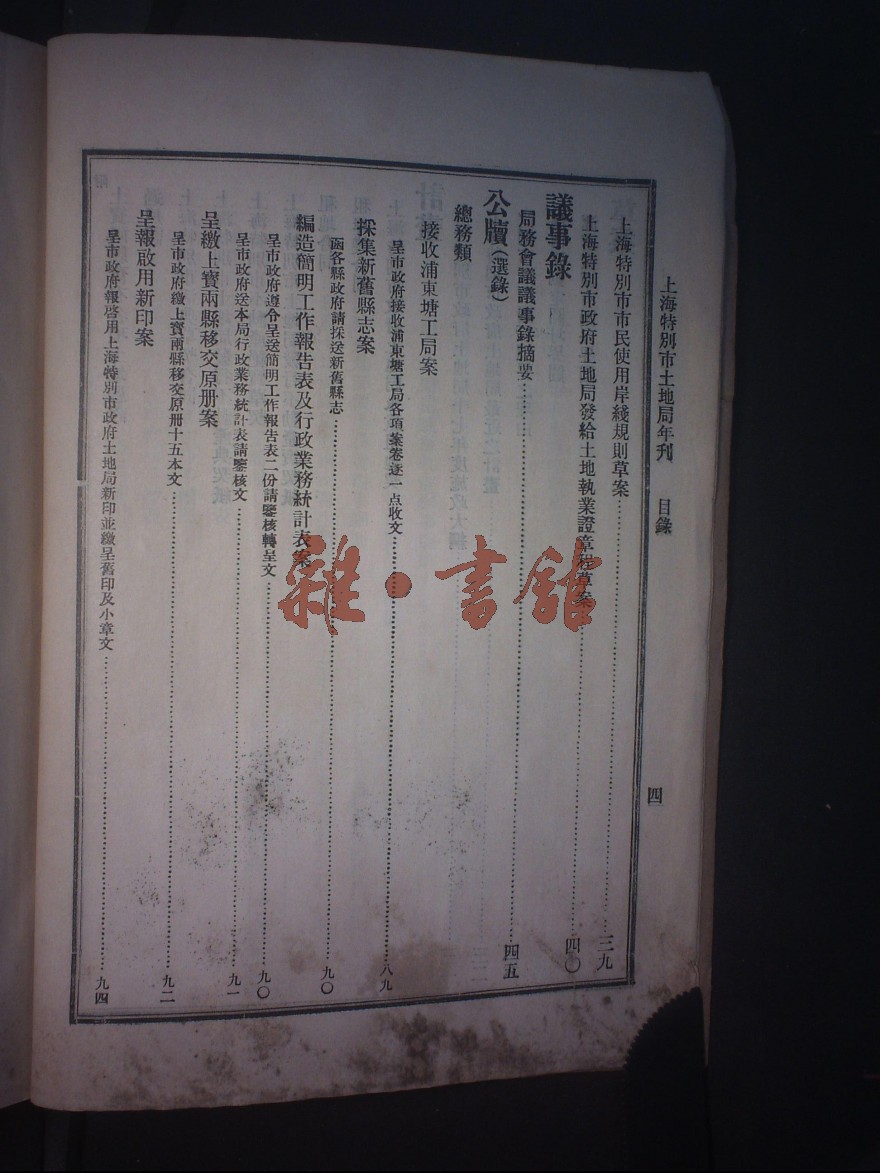 上海特別市土地局年刊　目錄
四
上海特別市市民使用岸綫規則草案……三九
上海特別市政府土地局發給土地執業證章程草案……四〇
議事錄
局務會議議事錄摘要……四五
公牘(選錄)
總務類
接收浦東塘工局案
呈市政府接收浦東塘工局各項案卷逐一点收文……八九
採集新舊縣志案
函各縣政府請採送新舊縣志……九〇
編造簡明工作報告表及行政業務統計表案
呈市政府遵令呈送簡明工作報告表二份請鑒核轉呈文……九〇
呈市政府送本局行政業務統計表請鑒核文……九一
呈繳上寶兩縣移交原册案
呈市政府繳上寶兩縣移交原册十五本文……九二
呈報啟用新印案
呈市政府報啓用上海特別市政府土地局新印並繳呈舊印及小章文……九四
雜·書館